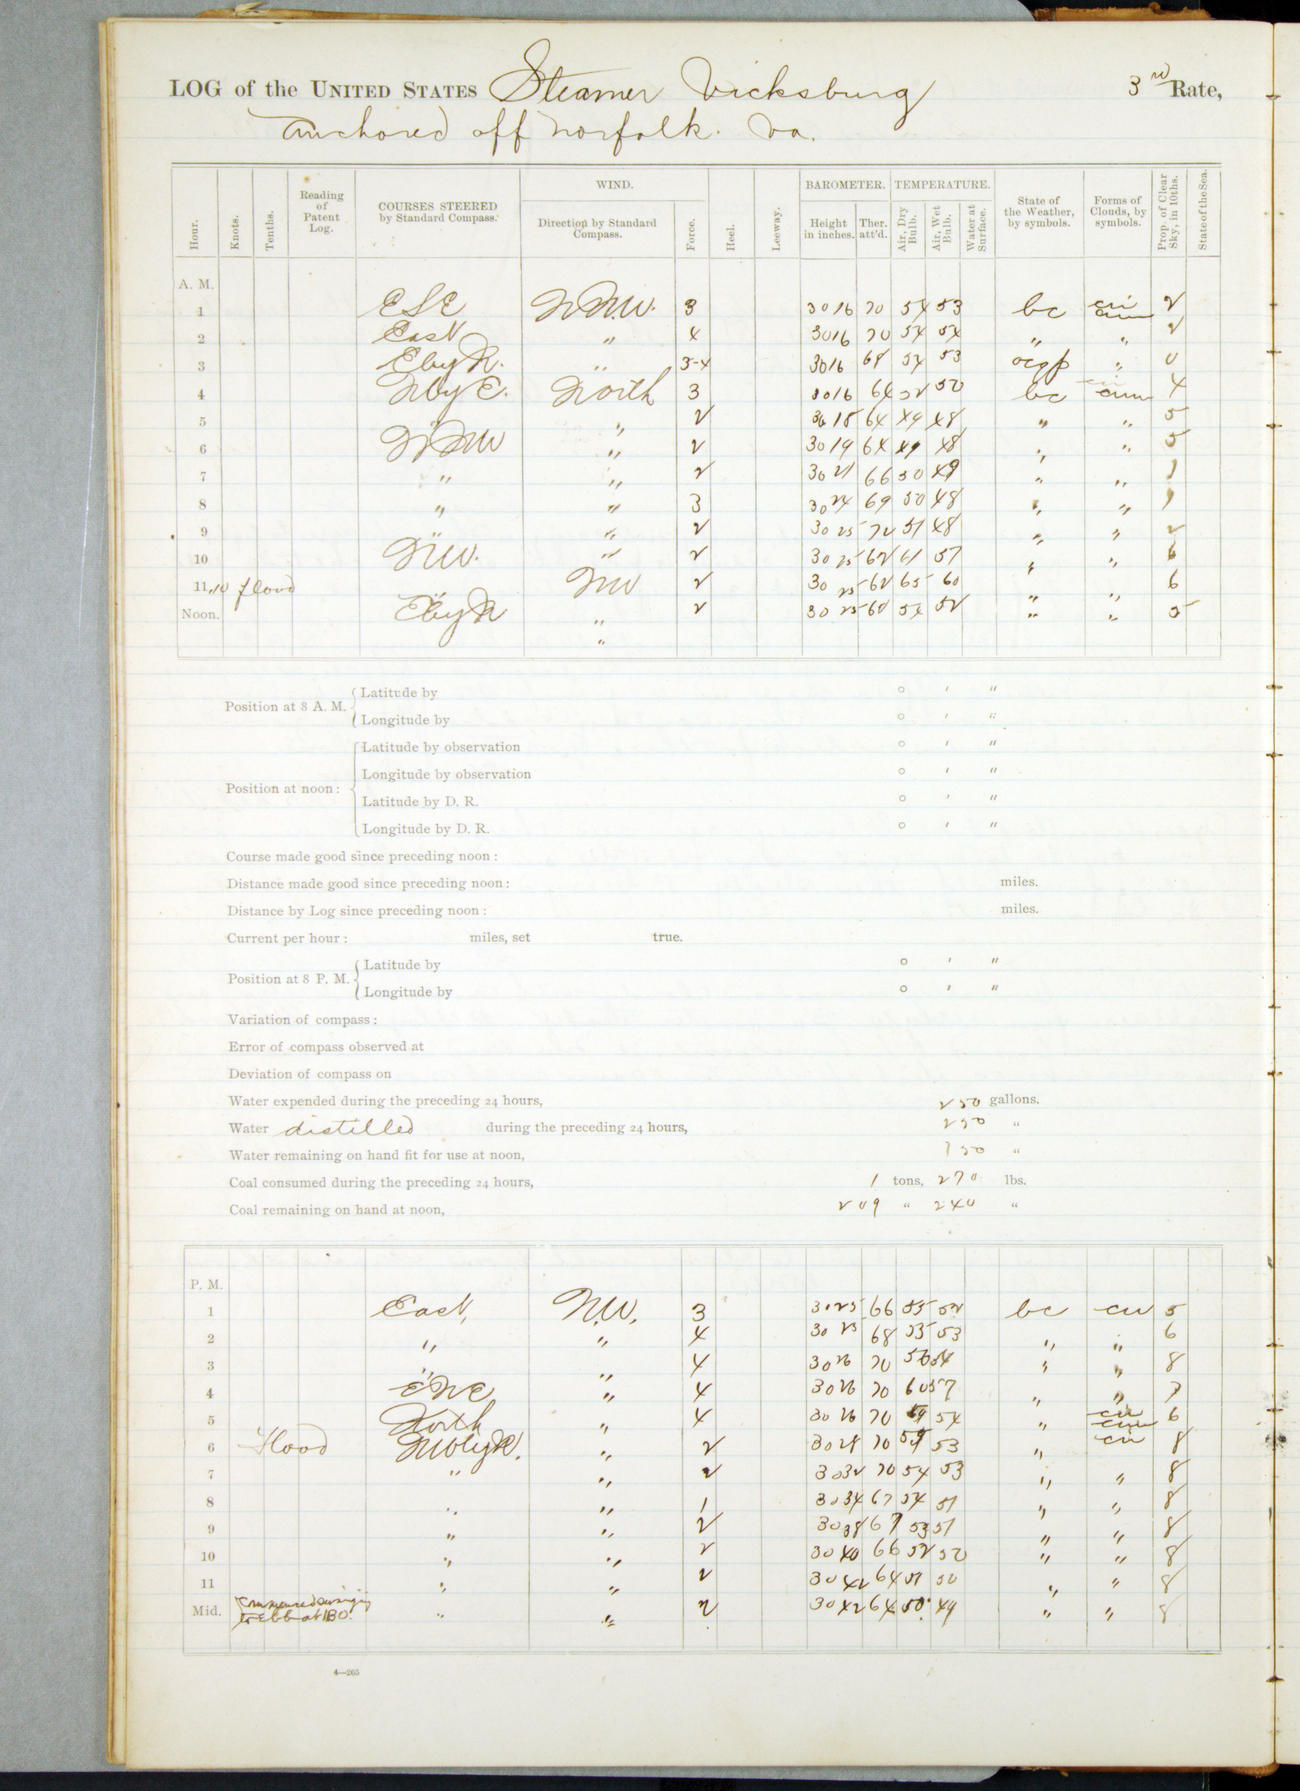 LOG of the UNITED STATES Steamer Vicksburg 3rd Rate,
anchored off Norfolk. Va.
Hour. Knots. Tenths. Reading of Patent Log. COURSES STEERED by Standard Compass. WIND. Direction by Standard Compass. Force. Heel. Leeway. BAROMETER. Height in inches. Ther. att'd. TEMPERATURE. Air, Dry Bulb. Air, Wet Bulb. Water at Surface. State of the Weather, by symbols. Forms of Clouds, by symbols. Prop. of Clear Sky, in 10ths. State of the Sea.
A. M.
1 ESE W.N.W. 3 30 16 70 54 53 bc 2
2 East " 4 30 16 70 54 54 " " 2
3 E by N. " 3-4 30 16 68 54 53 ocgp " 0
4 N by E. North 3 30 16 64 52 50 bc 4
5 " " 2 30 18 64 49 48 " " 5
6 WNW " 2 30 19 64 49 48 " " 5
7 " " 2 30 21 66 50 49 " " 1
8 " " 3 30 24 69 50 48 " " 1
9 " " 2 30 25 72 51 48 " " 2
10 NW. " 2 30 25 62 61 57 " " 6
11 11.10 flood " NW 2 30 25 62 65 60 " " 6
Noon. E by N " 2 30 25 60 54 52 " " 5
"
Position at 8 A. M. Latitude by ° ′ ″
Longitude by ° ′ ″
Latitude by observation ° ′ ″
Longitude by observation ° ′ ″
Position at noon:
Latitude by D. R. ° ′ ″
Longitude by D. R. ° ′ ″
Course made good since preceding noon:
Distance made good since preceding noon: miles.
Distance by Log since preceding noon: miles.
Current per hour: miles, set true.
Position at 8 P. M. Latitude by ° ′ ″
Longitude by ° ′ ″
Variation of compass:
Error of compass observed at
Deviation of compass on
Water expended during the preceding 24 hours, 250 gallons.
Water distilled during the preceding 24 hours, 250 "
Water remaining on hand fit for use at noon, 150 "
Coal consumed during the preceding 24 hours, 1 tons, 270 lbs.
Coal remaining on hand at noon, 209 " 240 "
P. M.
1 East, N.W. 3 30 25 66 55 52 bc cu 5
2 " " 4 30 25 68 55 53 " " 6
3 " " 4 30 26 70 56 54 " " 8
4 ENE " 4 30 26 70 60 57 " " 7
5 North " 4 30 26 70 59 54 " 6
6 flood NW by N. " 2 30 28 70 53 " 8
7 " " 2 30 32 70 54 53 " " 8
8 " " 1 30 34 67 54 51 " " 8
9 " " 2 30 38 67 53 51 " " 8
10 " " 2 30 40 66 52 50 " " 8
11 " " 2 30 42 64 51 50 " " 8
Mid. Commenced swinging to ebb at " " 2 30 42 64 50 49 " " 8
4—265